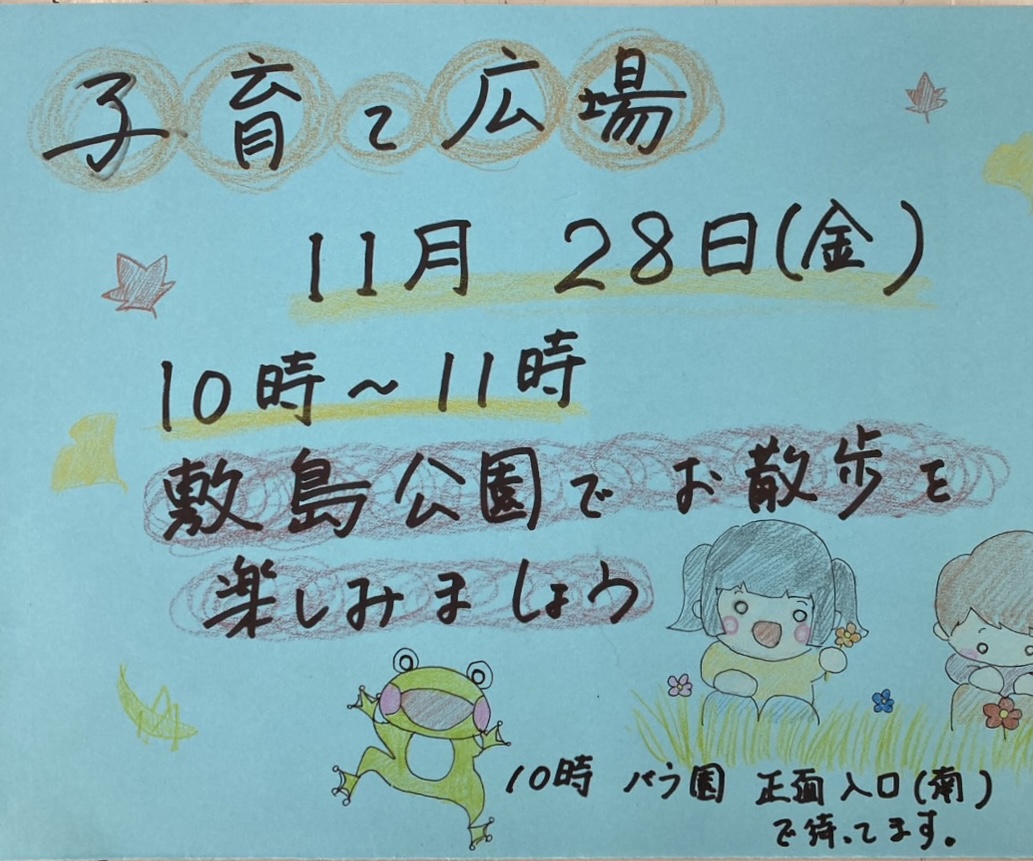 子育て広場
11月 28日(金)
10時～11時
敷島公園でお散歩を
楽しみましょう
10時 バラ園 正面入口(南)
で待ってます。